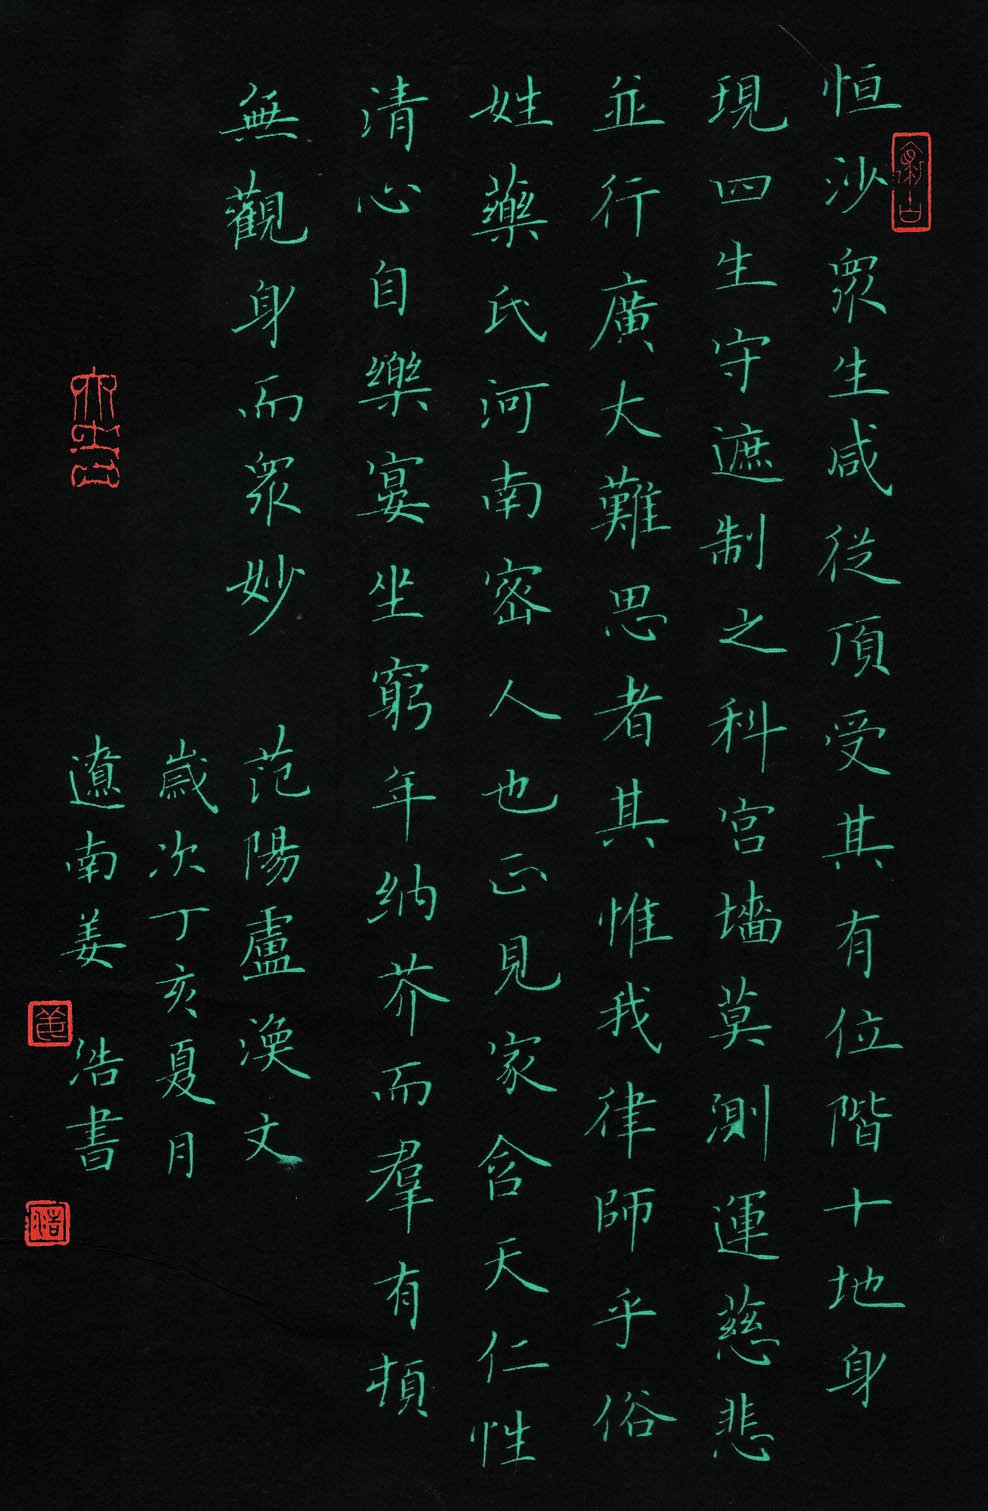 恒沙眾生咸從頂受其有位階十地身
現四生守遮制之科宮墻莫測運慈悲
並行廣大難思者其惟我律師乎俗
姓藥氏河南密人也正見家含天仁性
清心自樂宴坐窮年納芥而羣有頓
無觀身而眾妙
范陽盧渙文
歲次丁亥夏月
遼南姜浩書